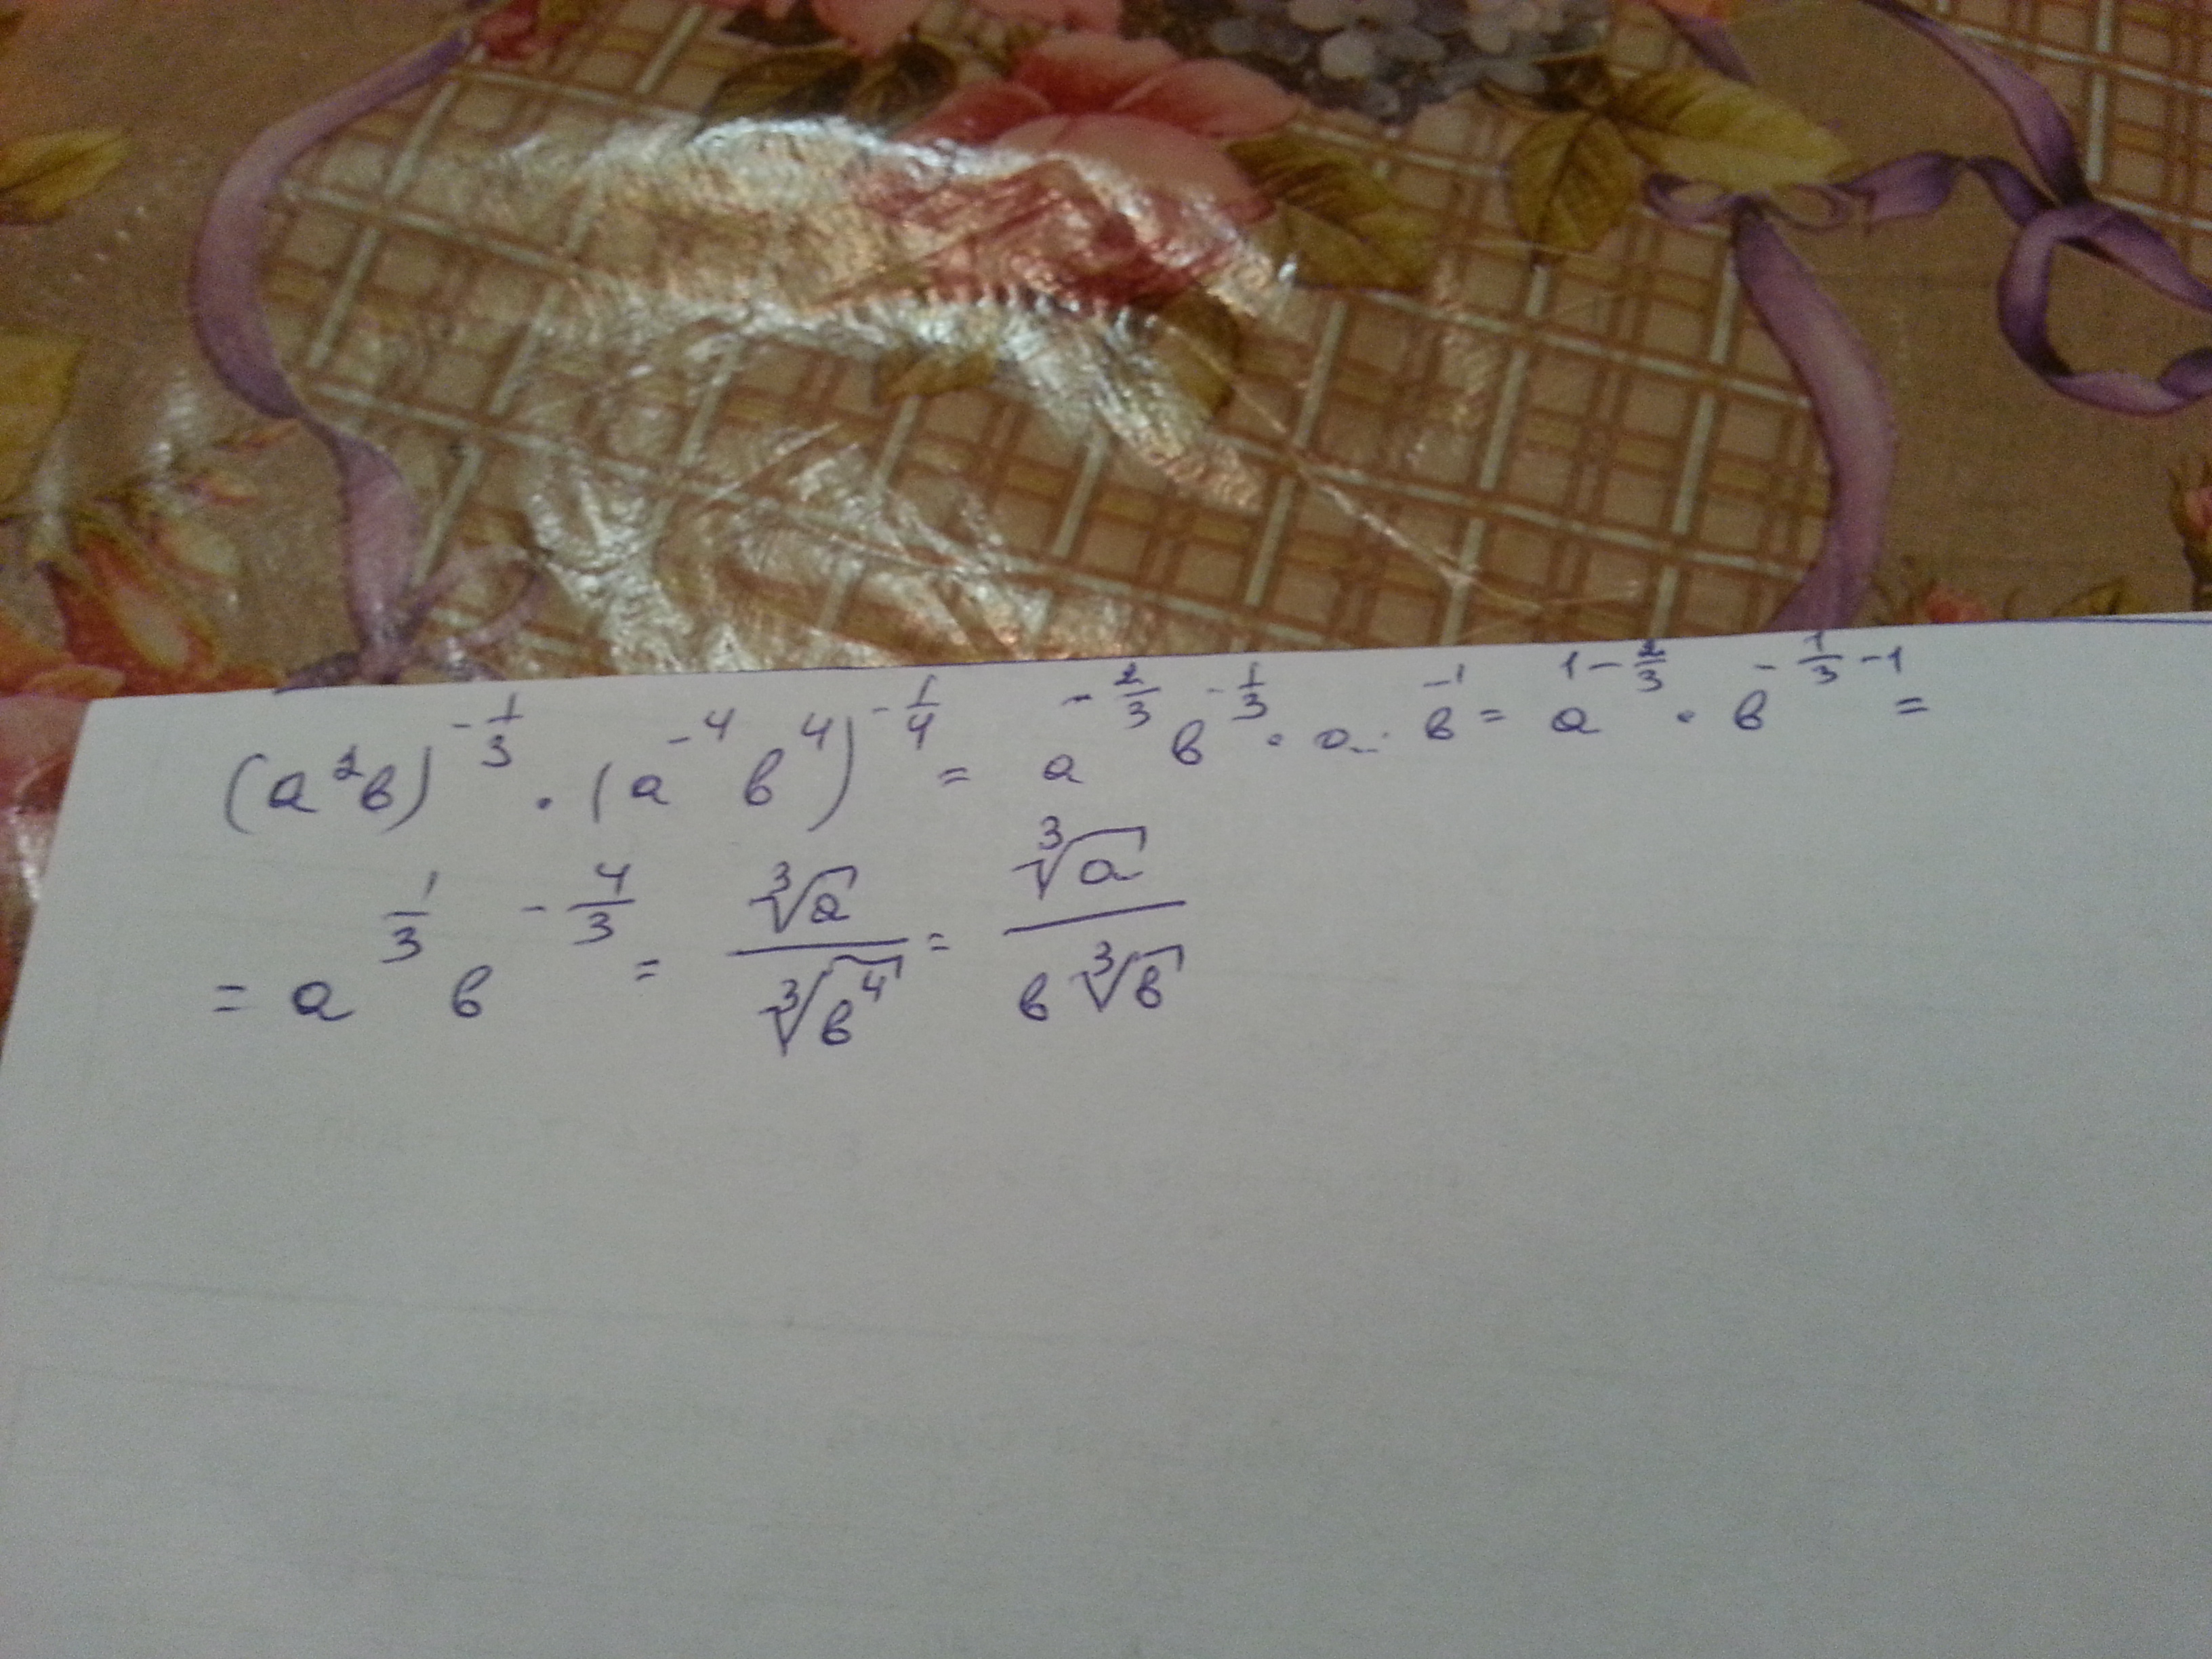 (a²b)^{-\frac{1}{3}} · (a^{-4} b^{4})^{-\frac{1}{4}} = a^{-\frac{2}{3}} b^{-\frac{1}{3}} · a · b^{-1} = a^{1-\frac{2}{3}} · b^{-\frac{1}{3}-1} =
= a^{\frac{1}{3}} b^{-\frac{4}{3}} = \frac{\sqrt[3]{a}}{\sqrt[3]{b^4}} = \frac{\sqrt[3]{a}}{b\sqrt[3]{b}}